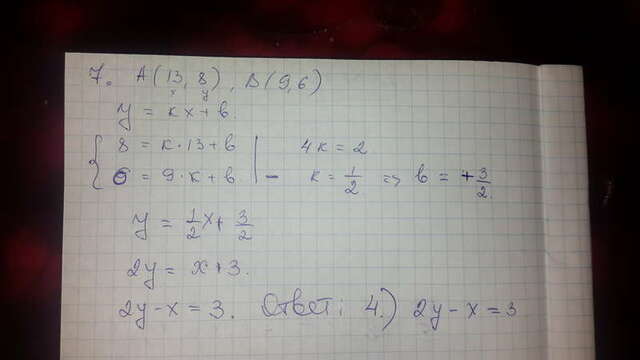 7. A(13, 8), B(9,6)
x y
y = kx + b.
{ 8 = k·13 + b | 4k = 2
6 = 9·k + b | - k = 1/2 => b = + 3/2.
y = 1/2 x + 3/2
2y = x + 3.
2y - x = 3. Ответ: 4.) 2y - x = 3